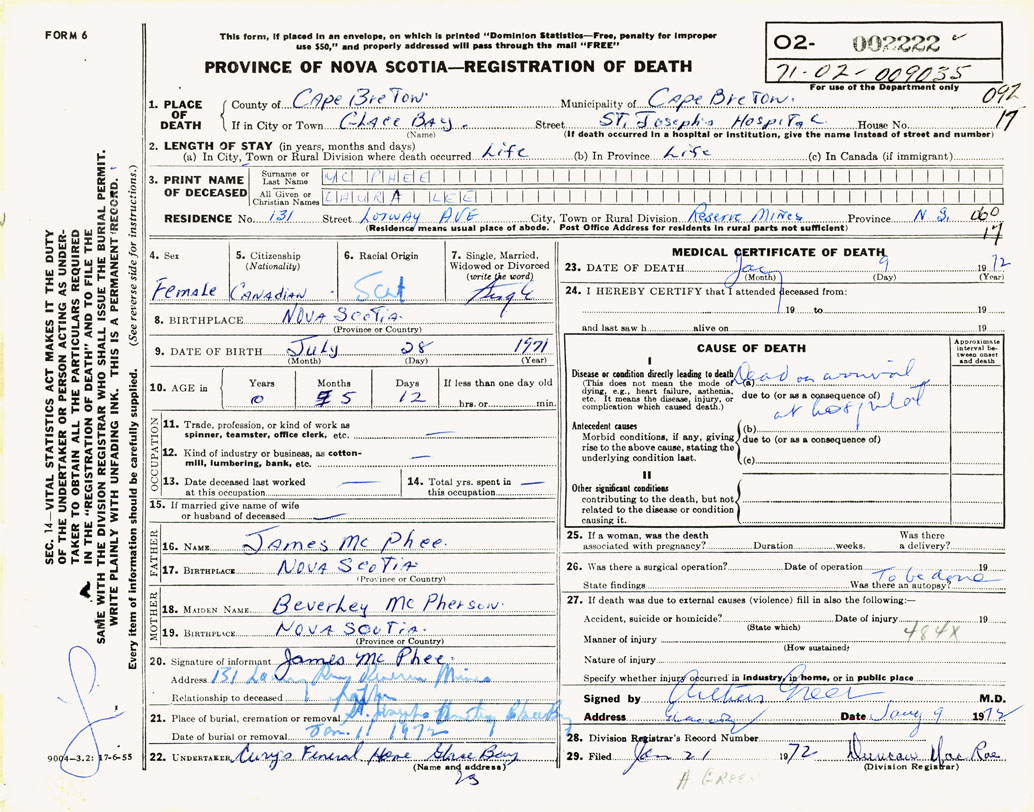 FORM 6
This form, if placed in an envelope, on which is printed "Dominion Statistics—Free, penalty for improper
use $50," and properly addressed will pass through the mail "FREE"
PROVINCE OF NOVA SCOTIA—REGISTRATION OF DEATH
02- 002222
71-02-009035
For use of the Department only
092
17
1. PLACE OF DEATH
County of Cape Breton. Municipality of Cape Breton.
If in City or Town Glace Bay. Street St. Joseph's Hospital House No.
(Name) (If death occurred in a hospital or institution, give the name instead of street and number)
2. LENGTH OF STAY (in years, months and days)
(a) In City, Town or Rural Division where death occurred Life (b) In Province Life (c) In Canada (if immigrant)
3. PRINT NAME OF DECEASED
Surname or Last Name MC PHEE
All Given or Christian Names LAURA LEE
RESIDENCE No. 131 Street Lorway AVE City, Town or Rural Division Reserve Mines Province N.S. 060
(Residence means usual place of abode. Post Office Address for residents in rural parts not sufficient)
17
4. Sex Female
5. Citizenship (Nationality) Canadian
6. Racial Origin Scot
7. Single, Married, Widowed or Divorced (write the word) Single
8. BIRTHPLACE Nova Scotia.
(Province or Country)
9. DATE OF BIRTH July 28 1971
(Month) (Day) (Year)
10. AGE in Years Months Days If less than one day old
0 5 12 hrs. or min.
OCCUPATION
11. Trade, profession, or kind of work as spinner, teamster, office clerk, etc. —
12. Kind of industry or business, as cotton-mill, lumbering, bank, etc. —
13. Date deceased last worked at this occupation —
14. Total yrs. spent in this occupation —
15. If married give name of wife or husband of deceased —
FATHER
16. NAME James Mc Phee.
17. BIRTHPLACE Nova Scotia
(Province or Country)
MOTHER
18. MAIDEN NAME Beverley Mc Pherson.
19. BIRTHPLACE Nova Scotia.
(Province or Country)
20. Signature of informant James Mc Phee.
Address 131 Reserve Mines
Relationship to deceased Father
21. Place of burial, cremation or removal St. Josephs
Date of burial or removal Jan. 11 1972
22. UNDERTAKER Curry's Funeral Home Glace Bay
(Name and address)
MEDICAL CERTIFICATE OF DEATH
23. DATE OF DEATH Jan 9 1972
(Month) (Day) (Year)
24. I HEREBY CERTIFY that I attended deceased from:
19 to 19
and last saw h alive on 19
CAUSE OF DEATH
Approximate interval between onset and death
I
Disease or condition directly leading to death
(This does not mean the mode of dying, e.g., heart failure, asthenia, etc. It means the disease, injury, or complication which caused death.)
(a) Dead on arrival
due to (or as a consequence of)
at hospital
Antecedent causes
Morbid conditions, if any, giving rise to the above cause, stating the underlying condition last.
(b)
due to (or as a consequence of)
(c)
II
Other significant conditions
contributing to the death, but not related to the disease or condition causing it.
25. If a woman, was the death associated with pregnancy? Duration weeks. Was there a delivery?
26. Was there a surgical operation? Date of operation 19
State findings Was there an autopsy? To be done
27. If death was due to external causes (violence) fill in also the following:—
Accident, suicide or homicide? Date of injury 19
(State which)
484X
Manner of injury
(How sustained)
Nature of injury
Specify whether injury occurred in industry, in home, or in public place
Signed by Arthur Greer M.D.
Address Date Jany 9 1972
28. Division Registrar's Record Number
29. Filed Jan 21 1972 Duncan Mac Rae
(Division Registrar)
A GREEN
SEC. 14—VITAL STATISTICS ACT MAKES IT THE DUTY
OF THE UNDERTAKER OR PERSON ACTING AS UNDER-
TAKER TO OBTAIN ALL THE PARTICULARS REQUIRED
IN THE "REGISTRATION OF DEATH" AND TO FILE THE
SAME WITH THE DIVISION REGISTRAR WHO SHALL ISSUE THE BURIAL PERMIT.
WRITE PLAINLY WITH UNFADING INK. THIS IS A PERMANENT RECORD.
Every item of information should be carefully supplied. (See reverse side for instructions.)
9004-3.2: 17-6-55